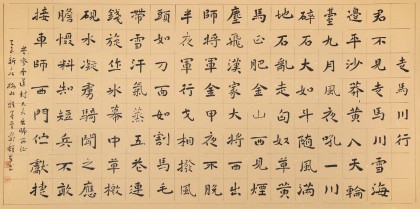 走馬川行
君不見走馬川雪海
邊平沙莽莽黃入天輪
臺九月風夜吼一川
碎石大如斗隨風滿
地石亂走匈奴草黃
馬正肥金山西見煙
塵飛漢家大將西出
師將軍金甲夜不脫
半夜軍行戈相撥風
頭如刀面如割馬毛
帶雪汗氣蒸五花連
錢旋作冰幕中草檄
硯水凝虜騎聞之應
膽懾料知短兵不敢
接車師西門佇獻捷
岑參奉送封大夫出師西征